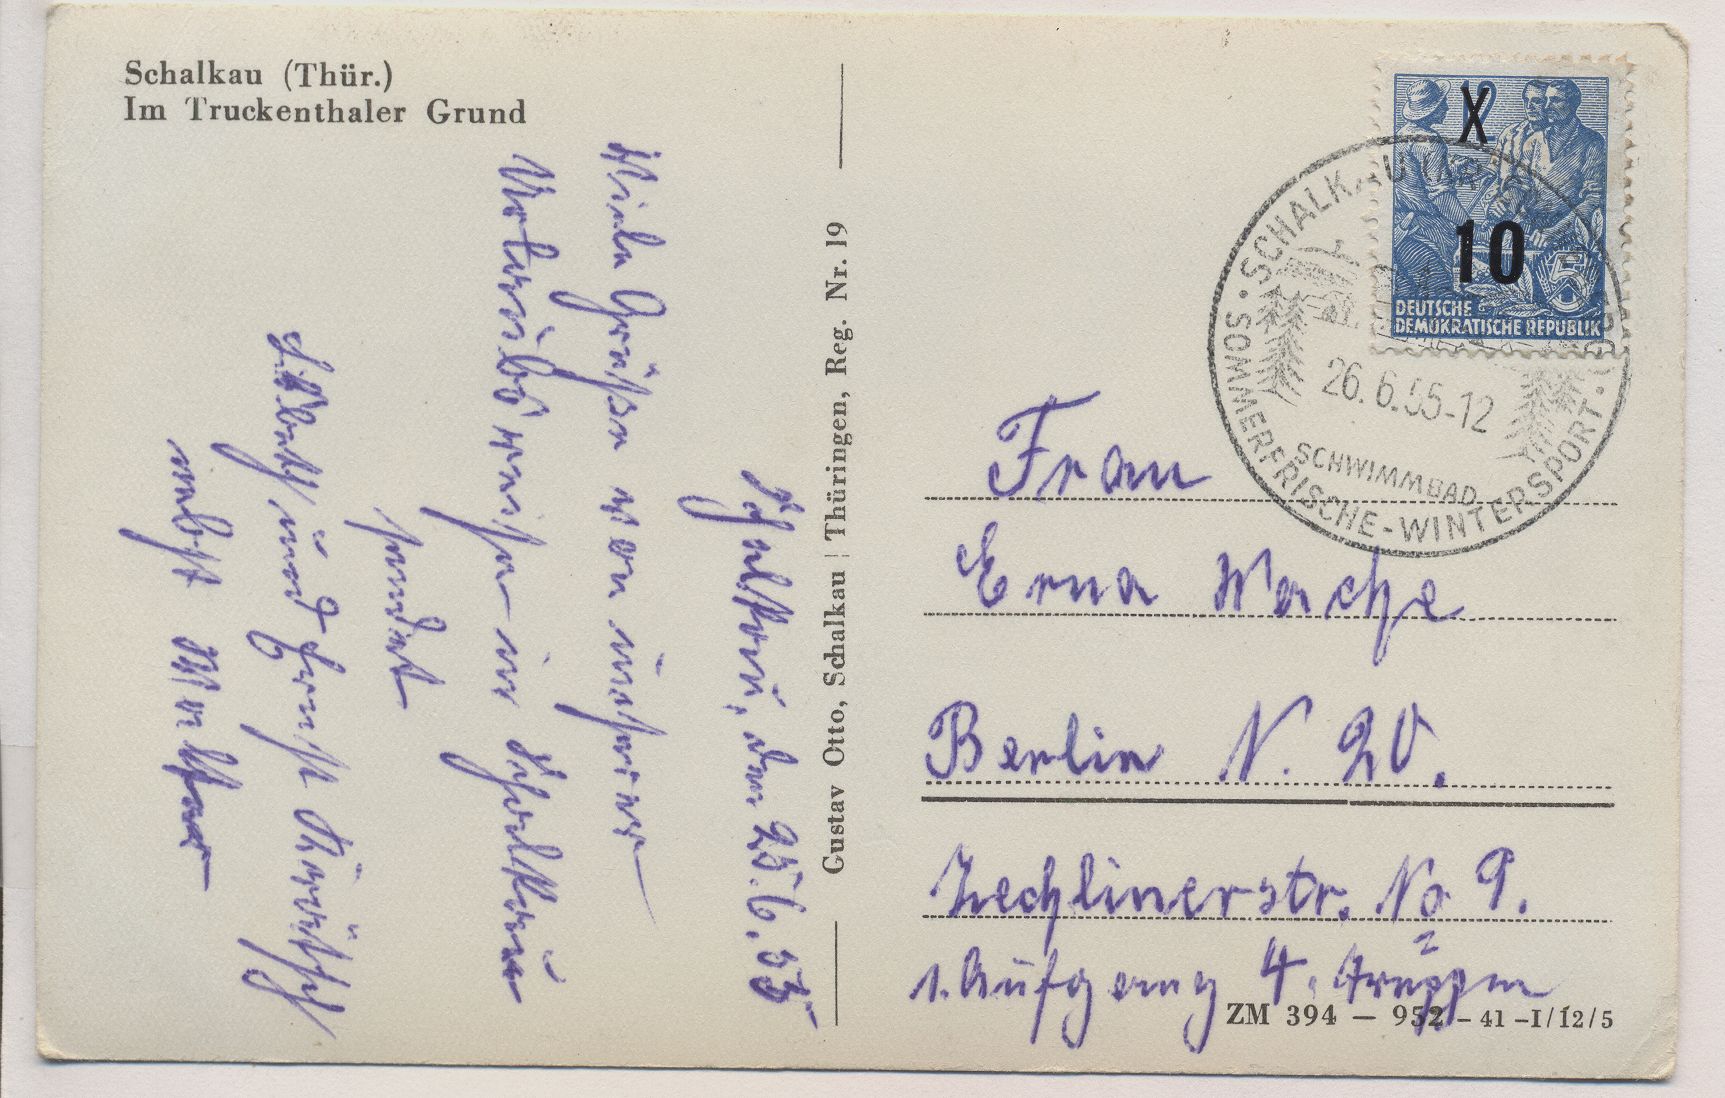 Schalkau (Thür.)
Im Truckenthaler Grund
Schalkau, den 25.6.55
Viele Grüße von unserer
Urlaubsreise in Schalkau
sendet
und Ernst
nebst
Gustav Otto, Schalkau | Thüringen, Reg. Nr. 19
X
10
DEUTSCHE
DEMOKRATISCHE REPUBLIK
SCHALKAU
26.6.55-12
SCHWIMMBAD
SOMMERFRISCHE-WINTERSPORT
Frau
Erna Wache
Berlin N. 20.
Zechlinerstr. No 9.
1. Aufgang 4. Treppen
ZM 394 — 952 - 41 -I/12/5